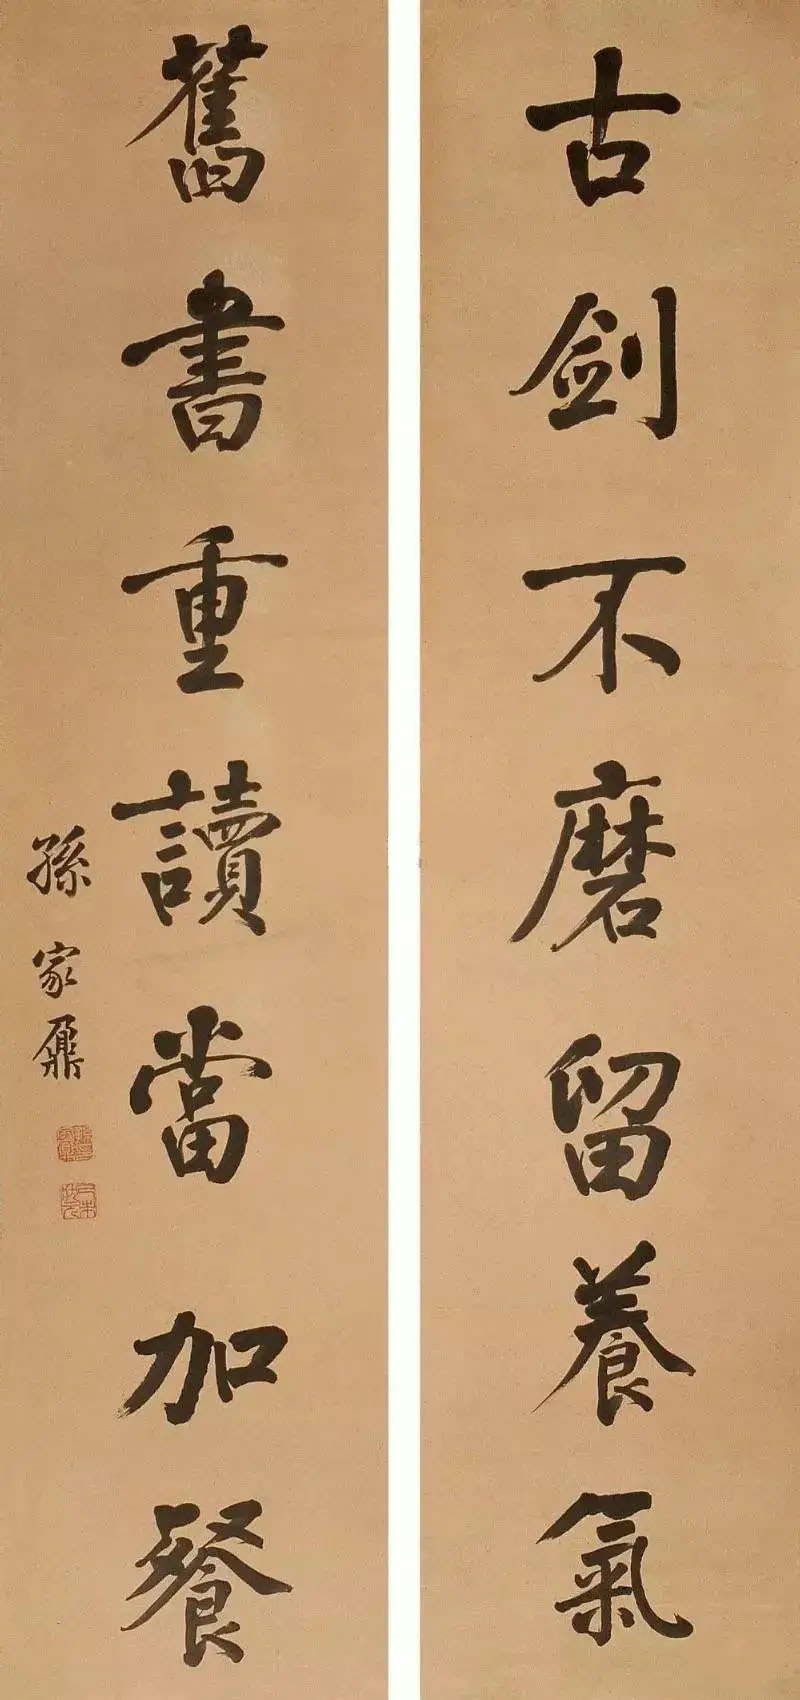 古劍不磨留養氣
舊書重讀當加餐
孫家鼐